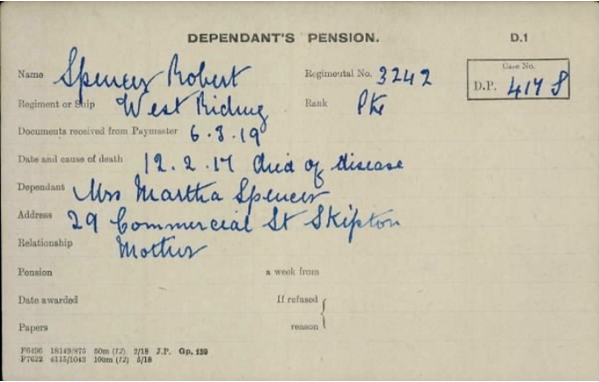 DEPENDANT'S PENSION. D.1
Name Spencer Robert Regimental No. 3242 Case No.
D.P. 417 S
Regiment or Ship West Riding Rank Pte
Documents received from Paymaster 6.3.19
Date and cause of death 12.2.17 died of disease
Dependant Mrs Martha Spencer
Address 29 Commercial St Skipton
Relationship Mother
Pension a week from
Date awarded If refused
Papers reason
F6496 18149/875 50m (12) 2/18 J.P. Gp. 139
F7622 4115/1043 100m (12) 5/18